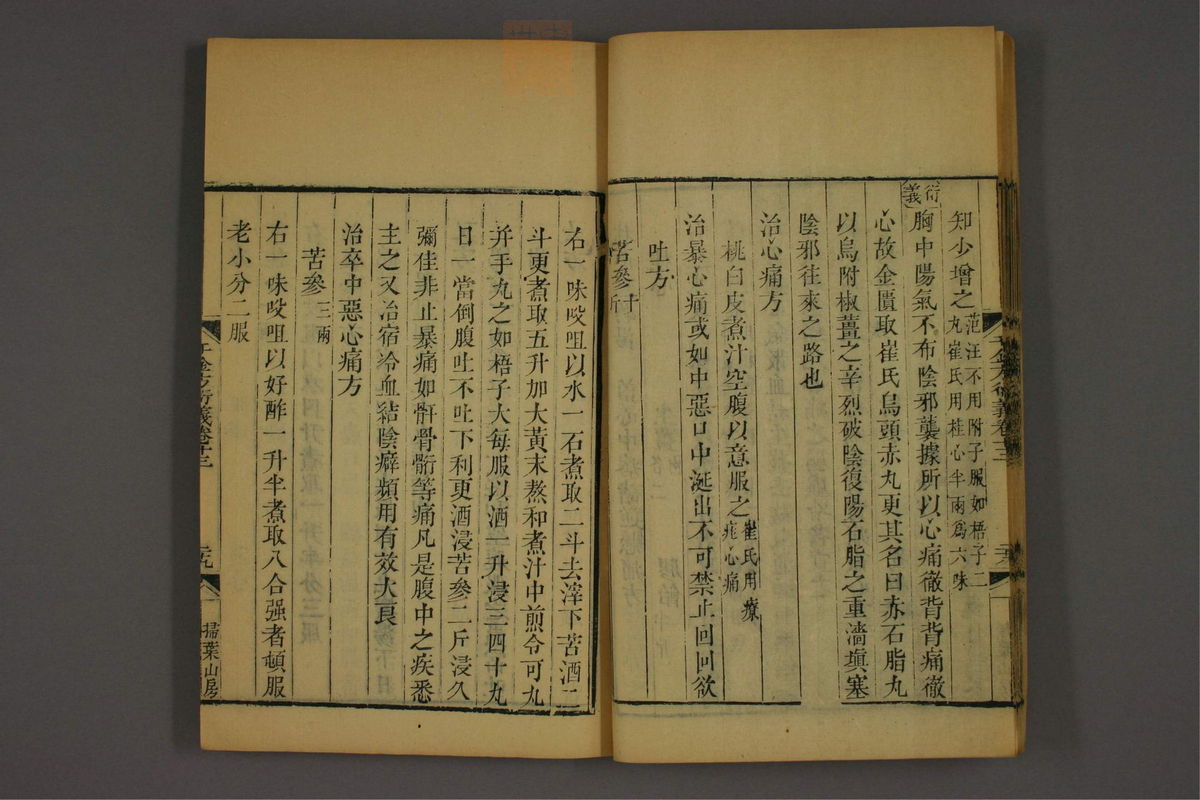 知少增之范汪不用附子服如梧子二丸崔氏用桂心半兩爲六味
衍義胸中陽氣不布陰邪襲據所以心痛徹背背痛徹
心故金匱取崔氏烏頭赤丸更其名曰赤石脂丸
以烏附椒薑之辛烈破陰復陽石脂之重濇塡塞
陰邪往來之路也
治心痛方
桃白皮煮汁空腹以意服之崔氏用療疰心痛
治暴心痛或如中惡口中涎出不可禁止回回欲
吐方
苦參十斤
右一味㕮咀以水一石煮取二斗去滓下苦酒二
斗更煮取五升加大黃末熬和煮汁中煎令可丸
幷手丸之如梧子大每服以酒一升浸三四十丸
日一當倒腹吐不吐下利更酒浸苦參二斤浸久
彌佳非止暴痛如骭骨䯒等痛凡是腹中之疾悉
主之又冶宿冷血結陰癖頻用有效大良
治卒中惡心痛方
苦參三兩
右一味㕮咀以好酢一升半煮取八合强者頓服
老小分二服
千金方衍義卷十三
掃葉山房